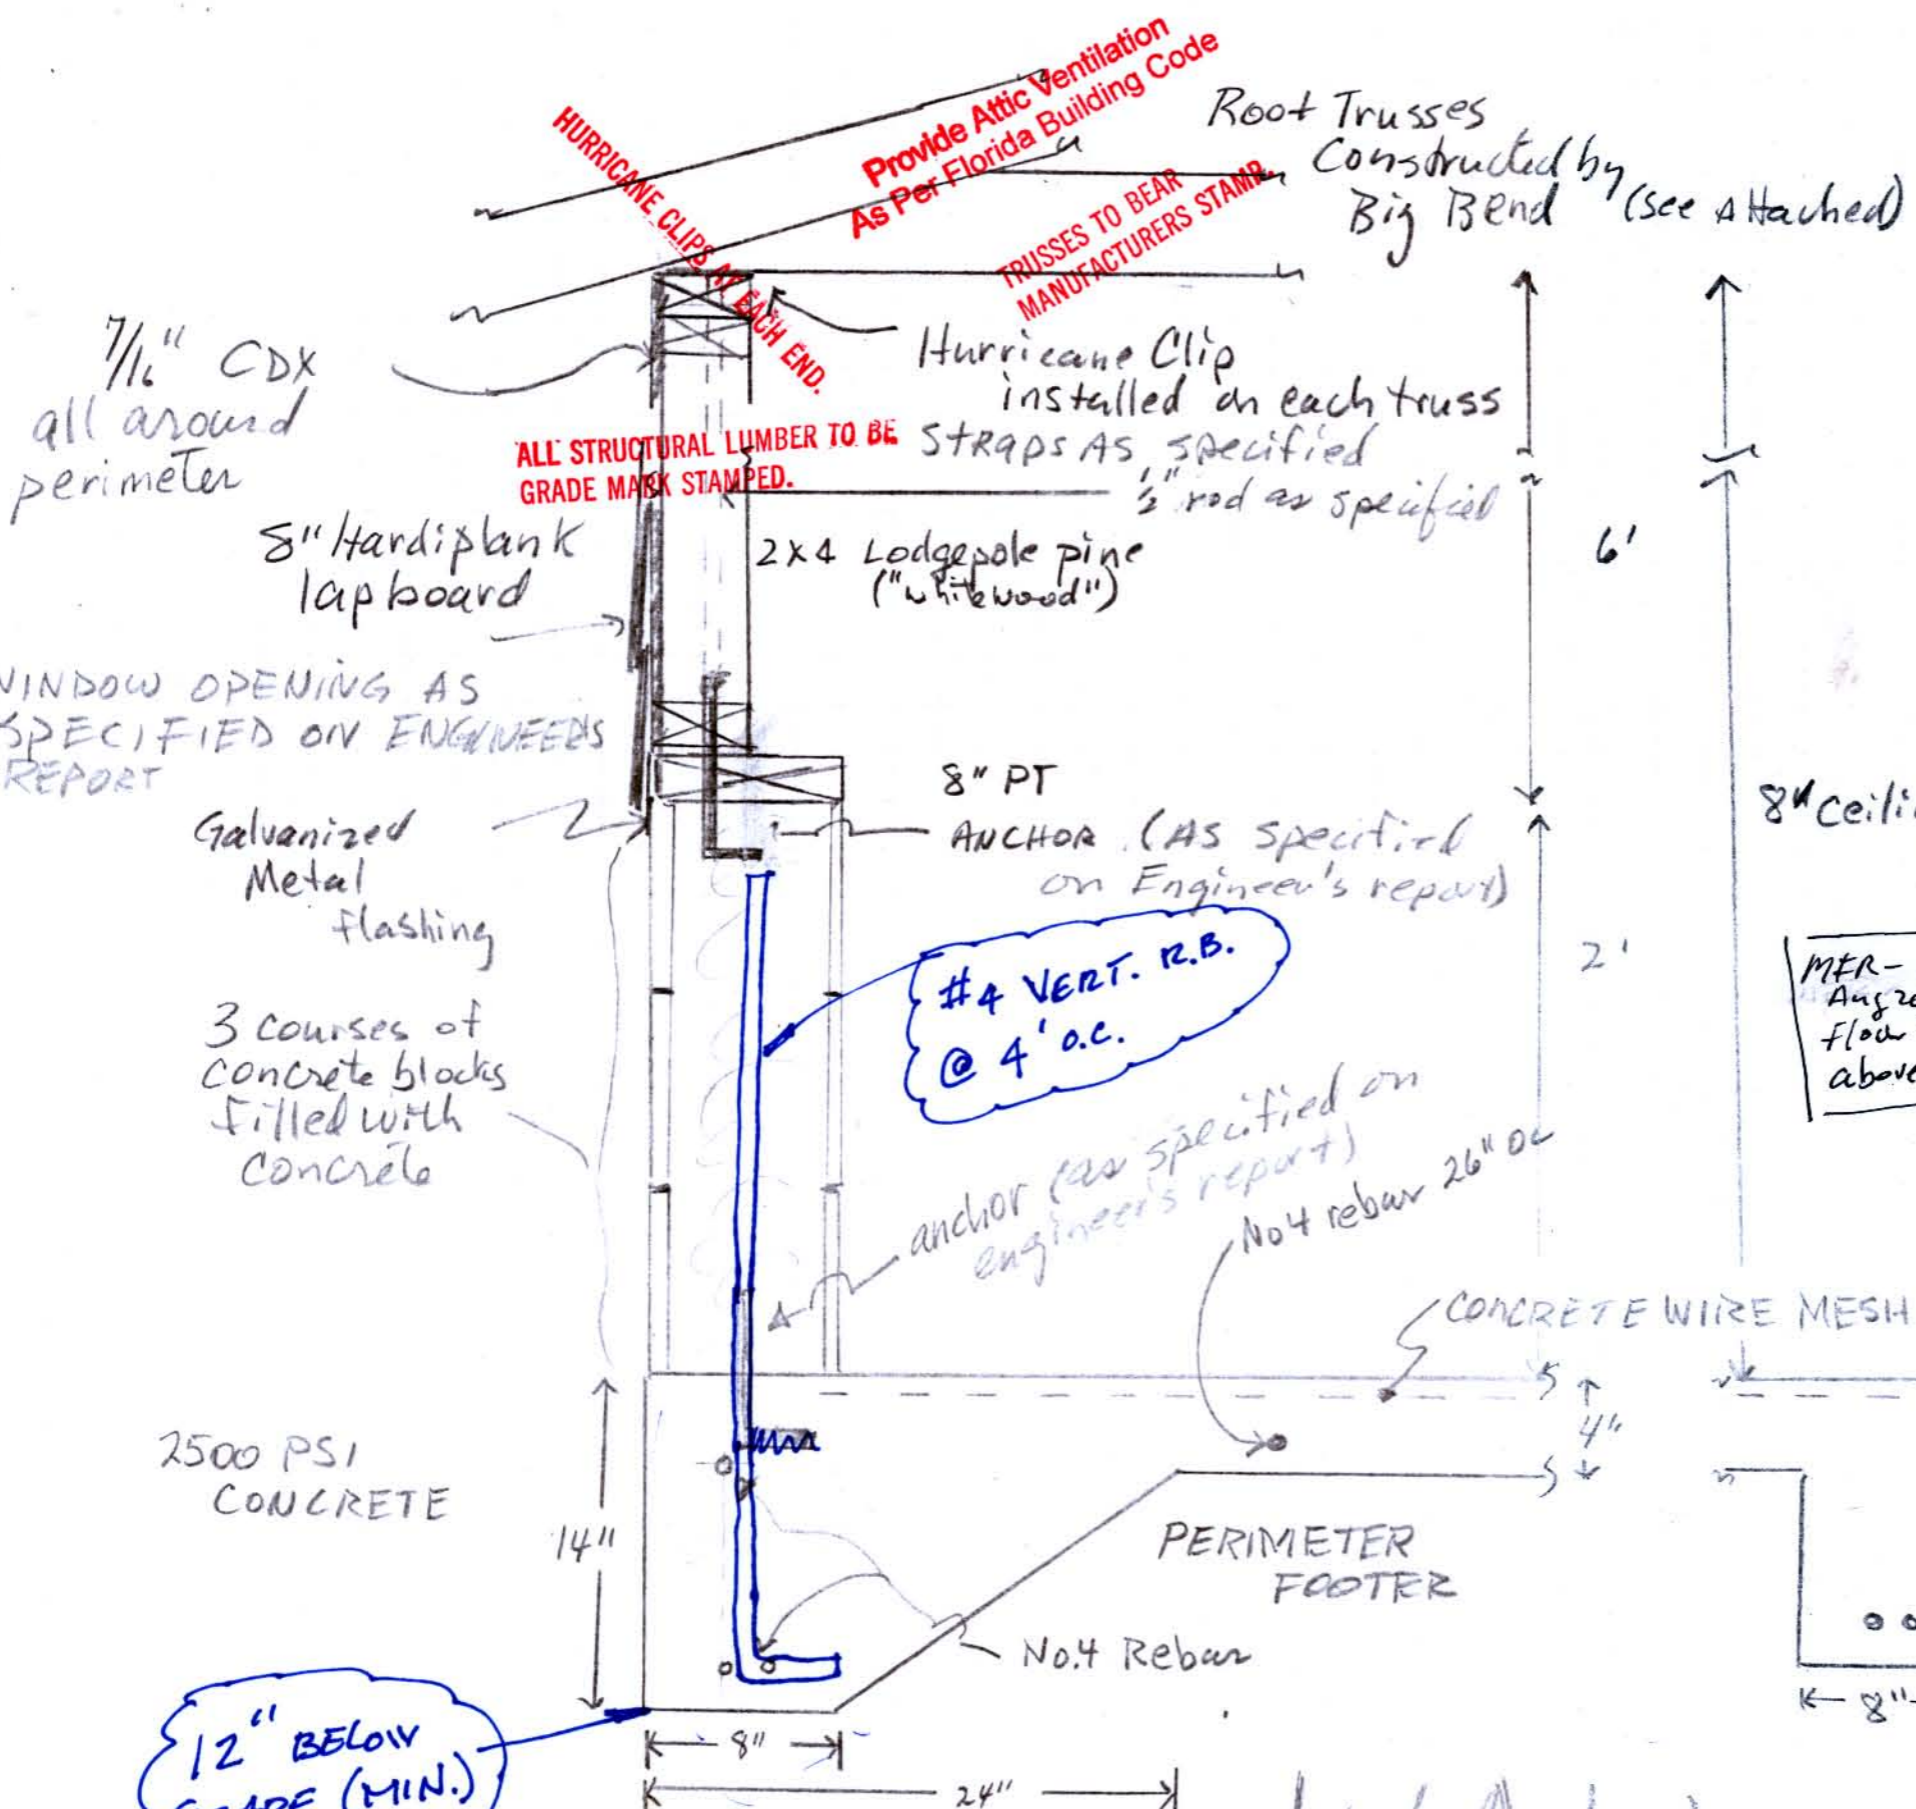 Provide Attic Ventilation
As Per Florida Building Code
HURRICANE CLIPS AT EACH END.
TRUSSES TO BEAR
MANUFACTURERS STAMP.
Roof Trusses
Constructed by
Big Bend (see Attached)
7/16" CDX
all around
perimeter
Hurricane Clip
installed on each truss
ALL STRUCTURAL LUMBER TO BE
GRADE MARK STAMPED.
STRAPS AS specified
1/2" rod as specified
8" Hardiplank
lapboard
2x4 Lodgepole pine
("whitewood")
6'
WINDOW OPENING AS
SPECIFIED ON ENGINEERS
REPORT
8" PT
Galvanized
Metal
flashing
ANCHOR (AS specified
on Engineer's report)
8' Ceili
#4 VERT. R.B.
@ 4' O.C.
2'
MER-
Aug
floor
above
3 courses of
concrete blocks
filled with
concrete
anchor (as specified on
engineer's report)
No4 rebar 26" OC
CONCRETE WIRE MESH
4"
2500 PSI
CONCRETE
14"
PERIMETER
FOOTER
No.4 Rebar
12" BELOW
GRADE (MIN.)
8"
8"
24"